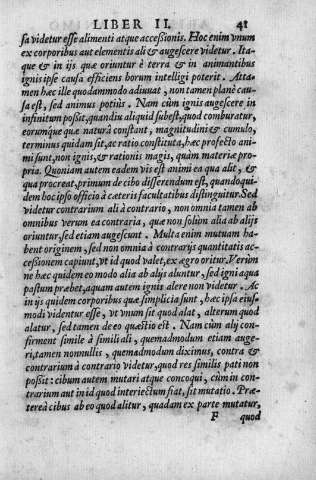 LIBER II. 41
sa videtur esse alimenti atque accessionis. Hoc enim vnum
ex corporibus aut elementis ali & augescere videtur. Ita-
que & in ijs quæ oriuntur è terra & in animantibus
ignis ipse causa efficiens horum intelligi poterit. Atta-
men hæc ille quodammodo adiuuat, non tamen planè cau-
sa est, sed animus potiùs. Nam cùm ignis augescere in
infinitum possit, quandiu aliquid subest, quod comburatur,
eorumque quæ naturâ constant, magnitudini & cumulo,
terminus quidam sit, ac ratio constituta, hæc profectò ani-
mi sunt, non ignis, & rationis magis, quàm materiæ pro-
pria. Quoniam autem eadem vis est animi ea qua alit, &
qua procreat, primum de cibo disserendum est, quandoqui-
dem hoc ipso officio à cæteris facultatibus distinguitur. Sed
videtur contrarium ali à contrario, non omnia tamen ab
omnibus verum ea contraria, quæ non solùm alia ab alijs
oriuntur, sed etiam augescunt. Multa enim mutuam ha-
bent originem, sed non omnia à contrarijs quantitatis ac-
cessionem capiunt, vt id quod valet, ex ægro oritur. Verùm
ne hæc quidem eo modo alia ab alijs aluntur, sed igni aqua
pastum præbet, aquam autem ignis alere non videtur. Ac
in ijs quidem corporibus quæ simplicia sunt, hæc ipsa eius-
modi videntur esse, vt vnum sit quod alat, alterum quod
alatur, sed tamen de eo quæstio est. Nam cùm alij con-
firment simile à simili ali, quemadmodum etiam auge-
ri, tamen nonnullis, quemadmodum diximus, contra &
contrarium à contrario videtur, quod res similis pati non
possit: cibum autem mutari atque concoqui, cùm in con-
trarium aut in id quod interiectum fiat, sit mutatio. Præ-
tereà cibus ab eo quod alitur, quadam ex parte mutatur,
F quod